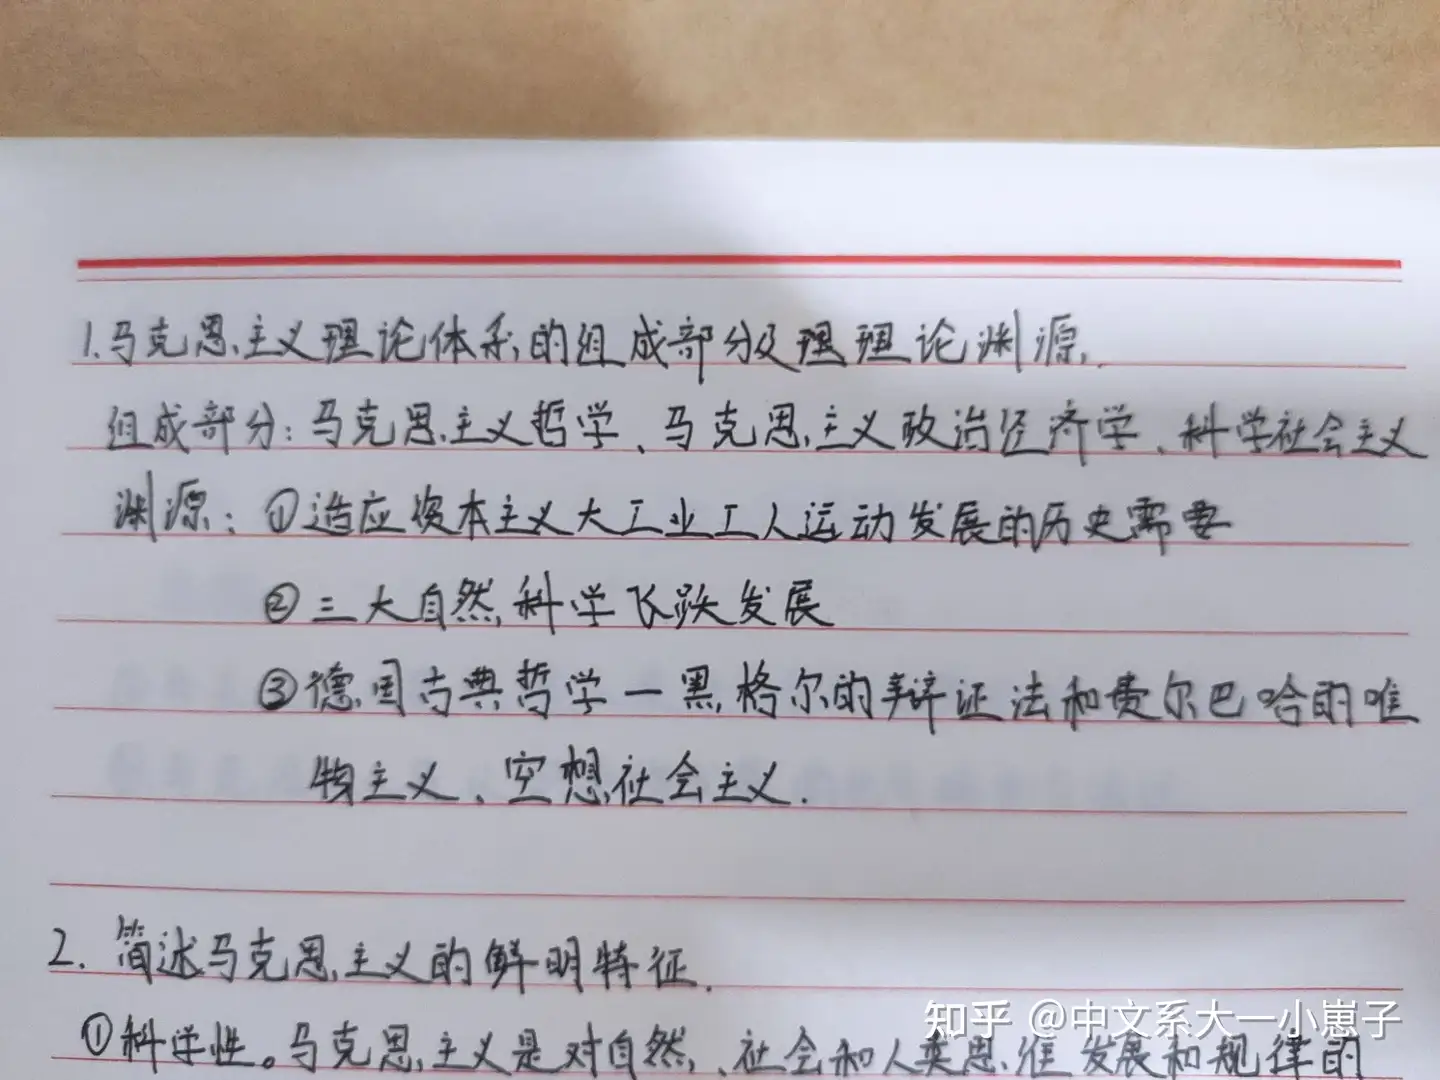 1.马克思主义理论体系的组成部分及理理论渊源.
组成部分：马克思主义哲学、马克思主义政治经济学、科学社会主义
渊源：①适应资本主义大工业工人运动发展的历史需要
②三大自然科学飞跃发展
③德国古典哲学一黑格尔的辩证法和费尔巴哈的唯
物主义、空想社会主义.
2.简述马克思主义的鲜明特征.
①科学性。马克思主义是对自然、社会和人类思维发展和规律的
知乎 @中文系大一小崽子